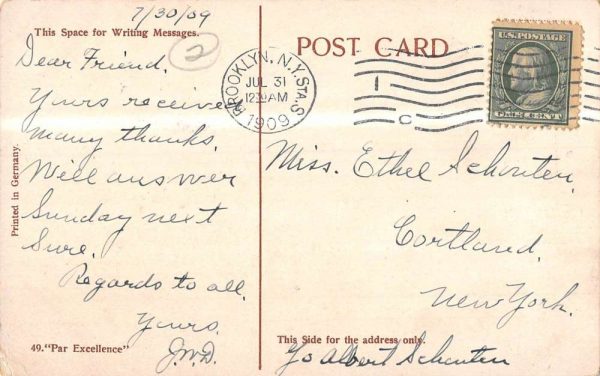 7/30/09
This Space for Writing Messages.
2
POST CARD
Dear Friend,
Yours received
many thanks.
Will answer
Sunday next
Sure.
Regards to all.
Yours.
J.W.D.
Printed in Germany.
49. "Par Excellence"
BROOKLYN, N.Y. STA. S.
JUL 31
12 30 AM
1909
1
C
U.S. POSTAGE
ONE CENT
Miss. Ethel Schouten,
Cortland.
New York.
This Side for the address only.
℅ Albert Schouten